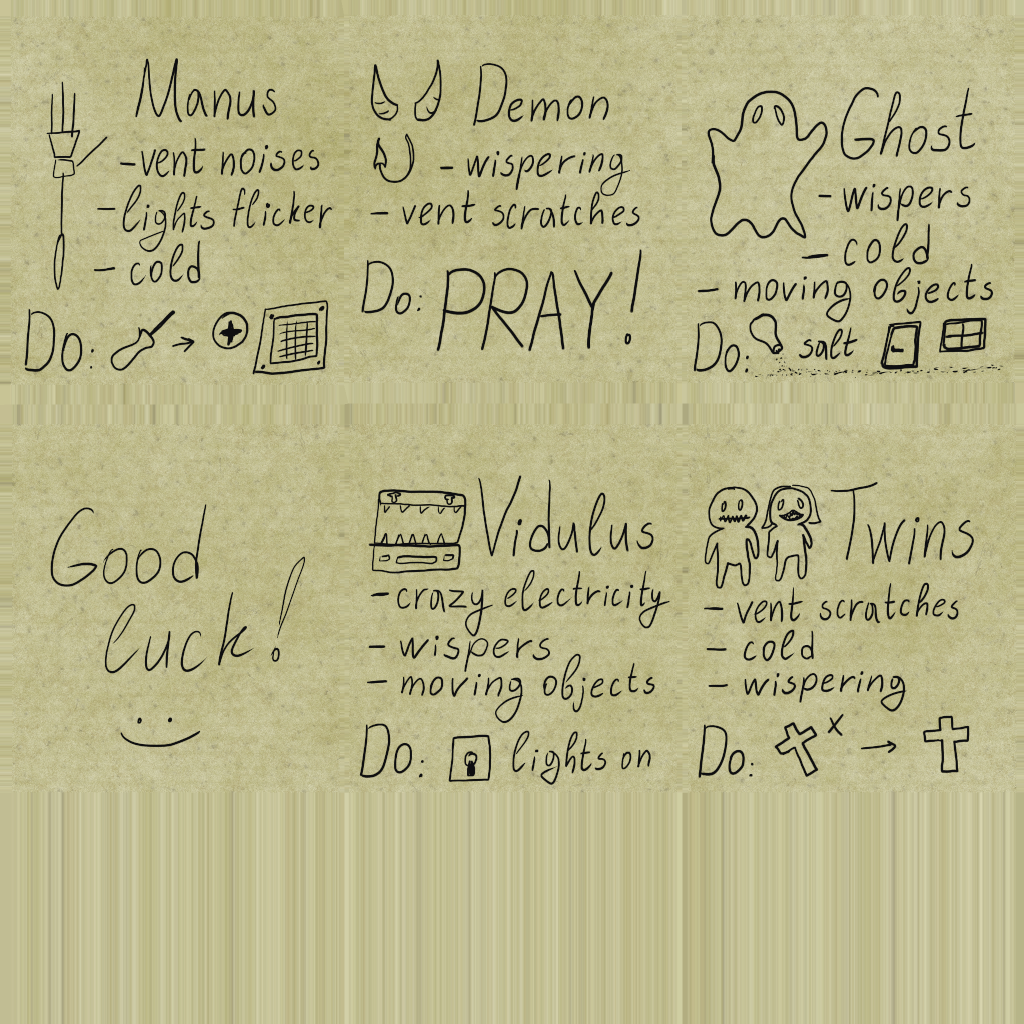 Manus
-vent noises
-lights flicker
- cold
Do:
Demon
- wispering
- vent scratches
Do: PRAY!
Ghost
- wispers
- cold
- moving objects
Do: salt
Good
luck!
Vidulus
- crazy electricity
- wispers
- moving objects
Do: lights on
Twins
- vent scratches
- cold
- wispering
Do: x